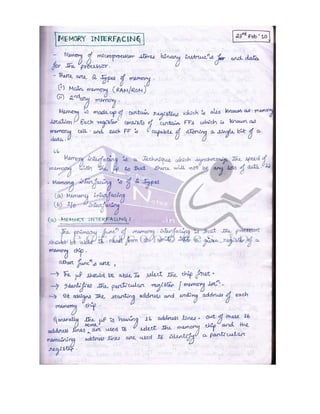 MEMORY INTERFACING
23rd Feb '10
- Memory of microprocessor stores binary instruc^n's for and data
for the processor.
- There are 2 types of memory.
(i) Main memory (RAM/ROM)
(ii) 2ndary memory.
Memory is made up of certain registers which is also known as memory
location. Each register consists of certain FFs which is known as
memory cell and each FF is capable of storing a single bit of
data.
Memory interfacing is a technique which synchronize the speed of
memory with the μp so that there will not be any loss of data.
- Memory interfacing is of 2 types
(a) Memory interfacing
(b) I/O interfacing
(a) MEMORY INTERFACING:
The primary func^n of memory interfacing is that the processor
should be able to read from (or) write into a given register of a
memory chip.
other func^n's are,
→ The μp should be able to select the chip first.
→ Identifies the particular register / memory loc^n.
→ It assigns the starting address and ending address of each
memory chip.
Generally the μp is having 16 address lines. Out of these 16
address lines some are used to select the memory chip and the
remaining address lines are used to identify a particular
register.